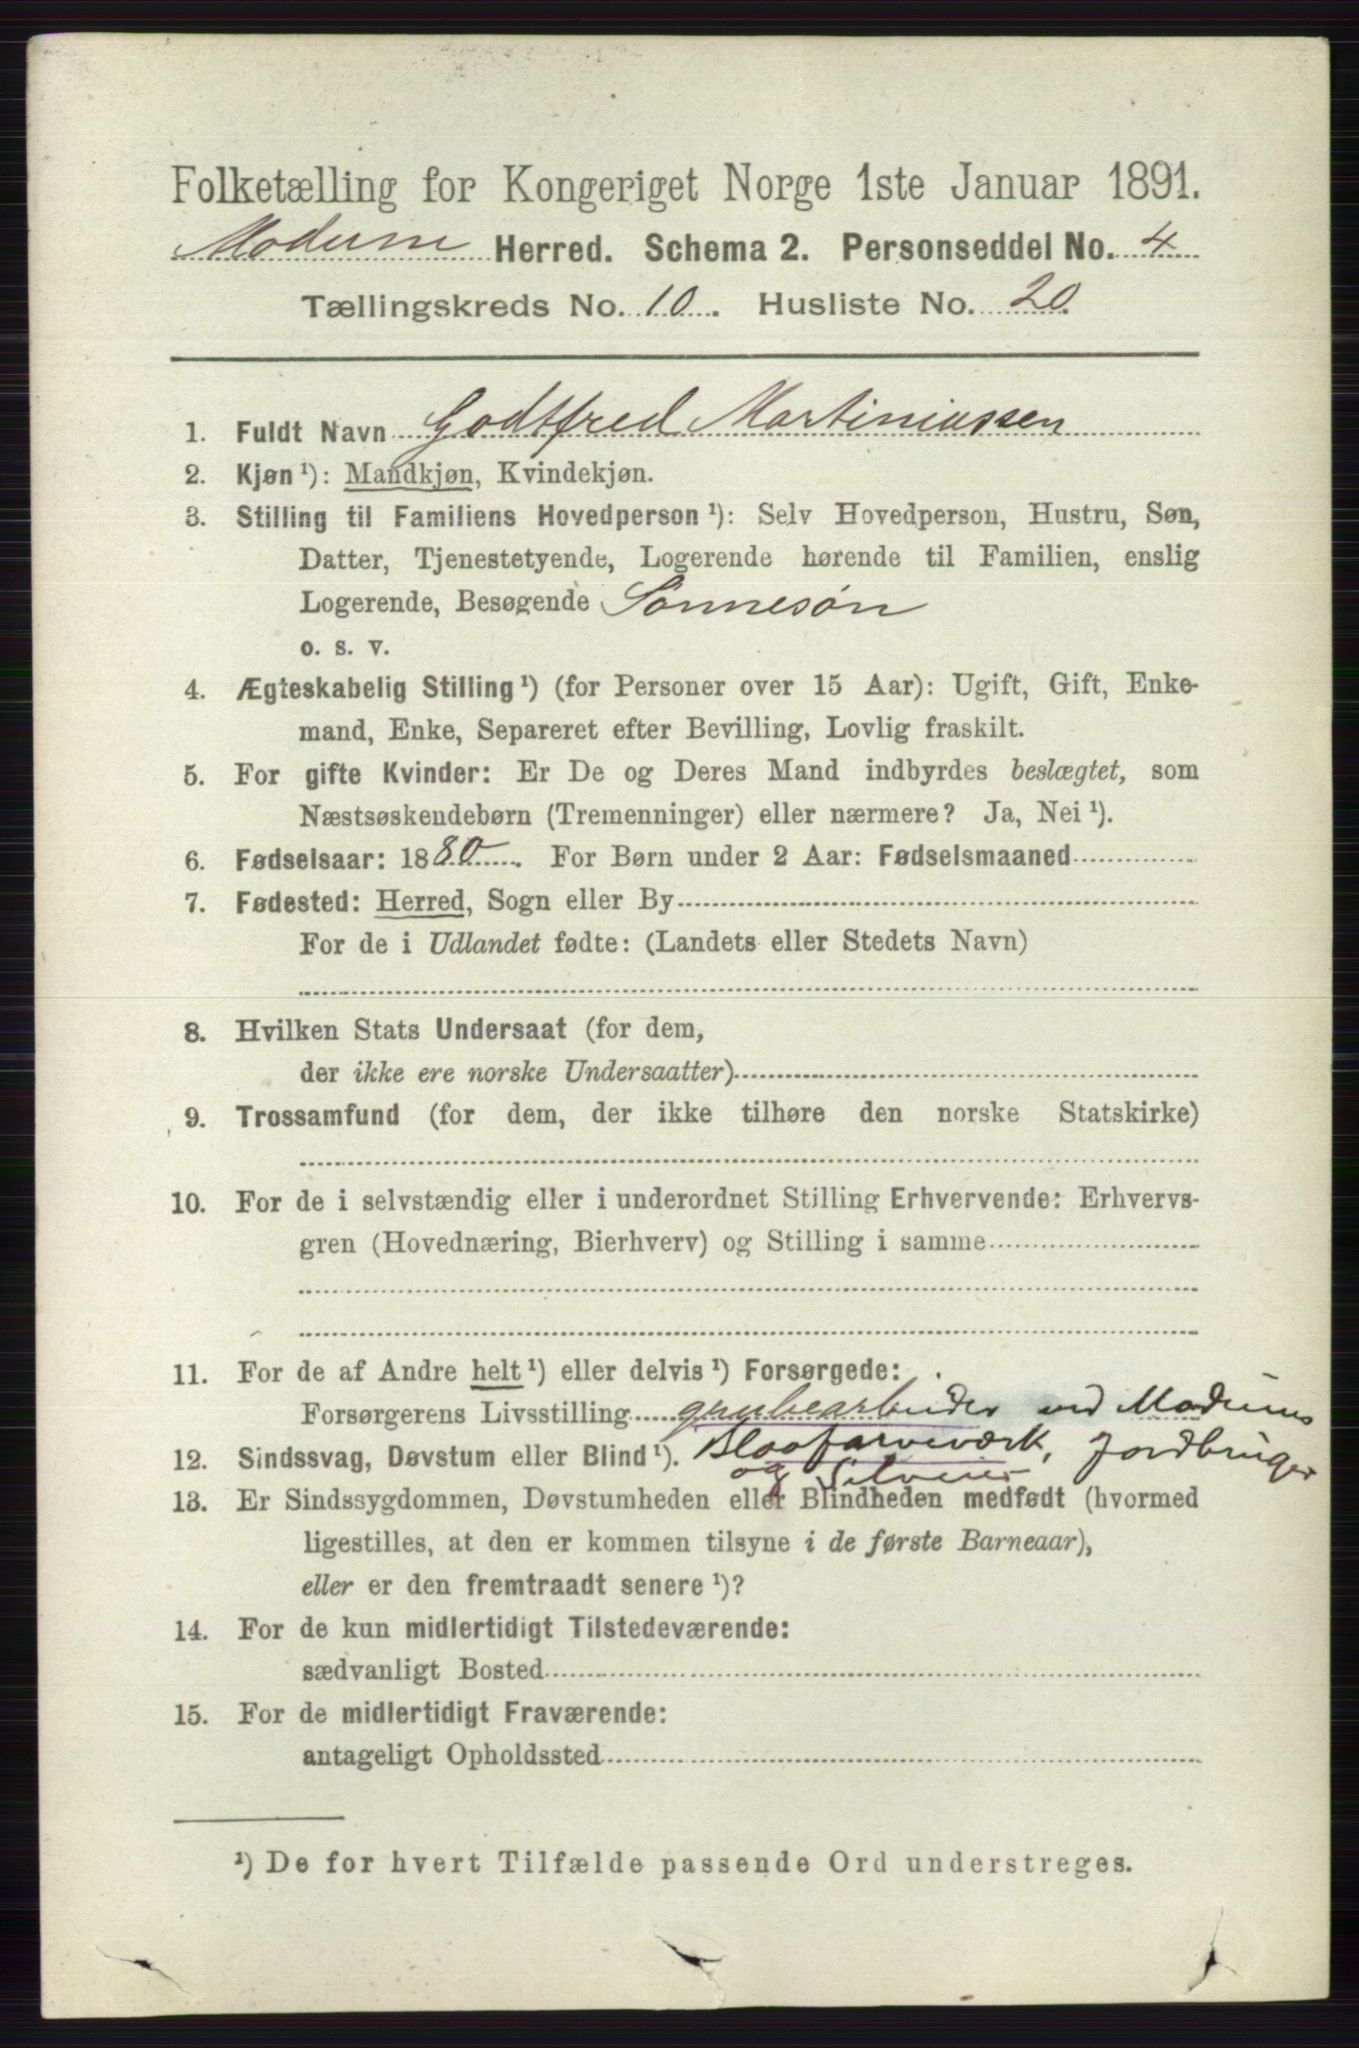 Folketælling for Kongeriget Norge 1ste Januar 1891.
Modum Herred. Schema 2. Personseddel No. 4
Tællingskreds No. 10. Husliste No. 20.
1. Fuldt Navn Godtfred Martiniussen
2. Kjøn ¹): Mandkjøn, Kvindekjøn.
3. Stilling til Familiens Hovedperson ¹): Selv Hovedperson, Hustru, Søn,
Datter, Tjenestetyende, Logerende hørende til Familien, enslig
Logerende, Besøgende Sønnesøn
o. s. v.
4. Ægteskabelig Stilling ¹) (for Personer over 15 Aar): Ugift, Gift, Enke-
mand, Enke, Separeret efter Bevilling, Lovlig fraskilt.
5. For gifte Kvinder: Er De og Deres Mand indbyrdes beslægtet, som
Næstsøskendebørn (Tremenninger) eller nærmere? Ja, Nei ¹).
6. Fødselsaar: 1880. For Børn under 2 Aar: Fødselsmaaned
7. Fødested: Herred, Sogn eller By
For de i Udlandet fødte: (Landets eller Stedets Navn)
8. Hvilken Stats Undersaat (for dem,
der ikke ere norske Undersaatter)
9. Trossamfund (for dem, der ikke tilhøre den norske Statskirke)
10. For de i selvstændig eller i underordnet Stilling Erhvervende: Erhvervs-
gren (Hovednæring, Bierhverv) og Stilling i samme
11. For de af Andre helt ¹) eller delvis ¹) Forsørgede:
Forsørgerens Livsstilling grubearbeider ved Modums
12. Sindssvag, Døvstum eller Blind ¹). Blaafarveværk, Jordbruger
og Selveier
13. Er Sindssygdommen, Døvstumheden eller Blindheden medfødt (hvormed
ligestilles, at den er kommen tilsyne i de første Barneaar),
eller er den fremtraadt senere ¹)?
14. For de kun midlertidigt Tilstedeværende:
sædvanligt Bosted
15. For de midlertidigt Fraværende:
antageligt Opholdssted
¹) De for hvert Tilfælde passende Ord understreges.